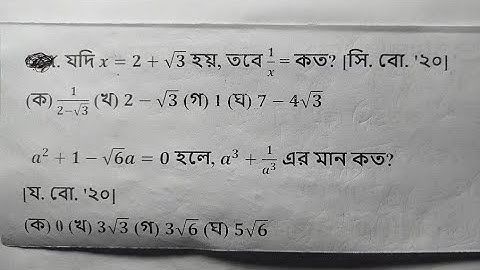 . যদি x = 2 + √3 হয়, তবে 1/x = কত? [সি. বো. '২০]
(ক) 1/(2−√3) (খ) 2 − √3 (গ) 1 (ঘ) 7 − 4√3
a² + 1 − √6a = 0 হলে, a³ + 1/a³ এর মান কত?
[য. বো. '২০]
(ক) 0 (খ) 3√3 (গ) 3√6 (ঘ) 5√6